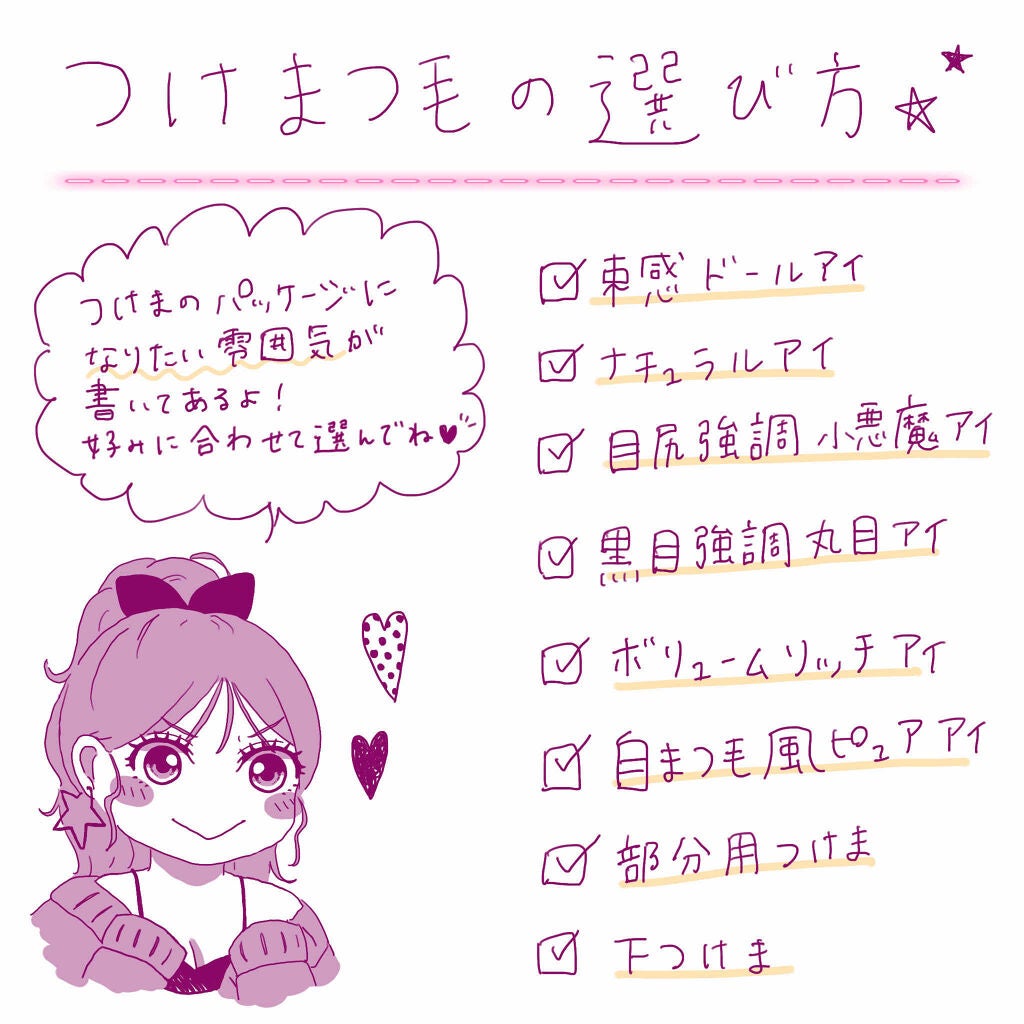 つけまつ毛の選び方☆★
つけまのパッケージに
なりたい雰囲気が
書いてあるよ!
好みに合わせて選んでね♥
☑束感ドールアイ
☑ナチュラルアイ
☑目尻強調 小悪魔アイ
☑黒目強調 丸目アイ
☑ボリュームリッチアイ
☑自まつ毛風ピュアアイ
☑部分用つけま
☑下つけま